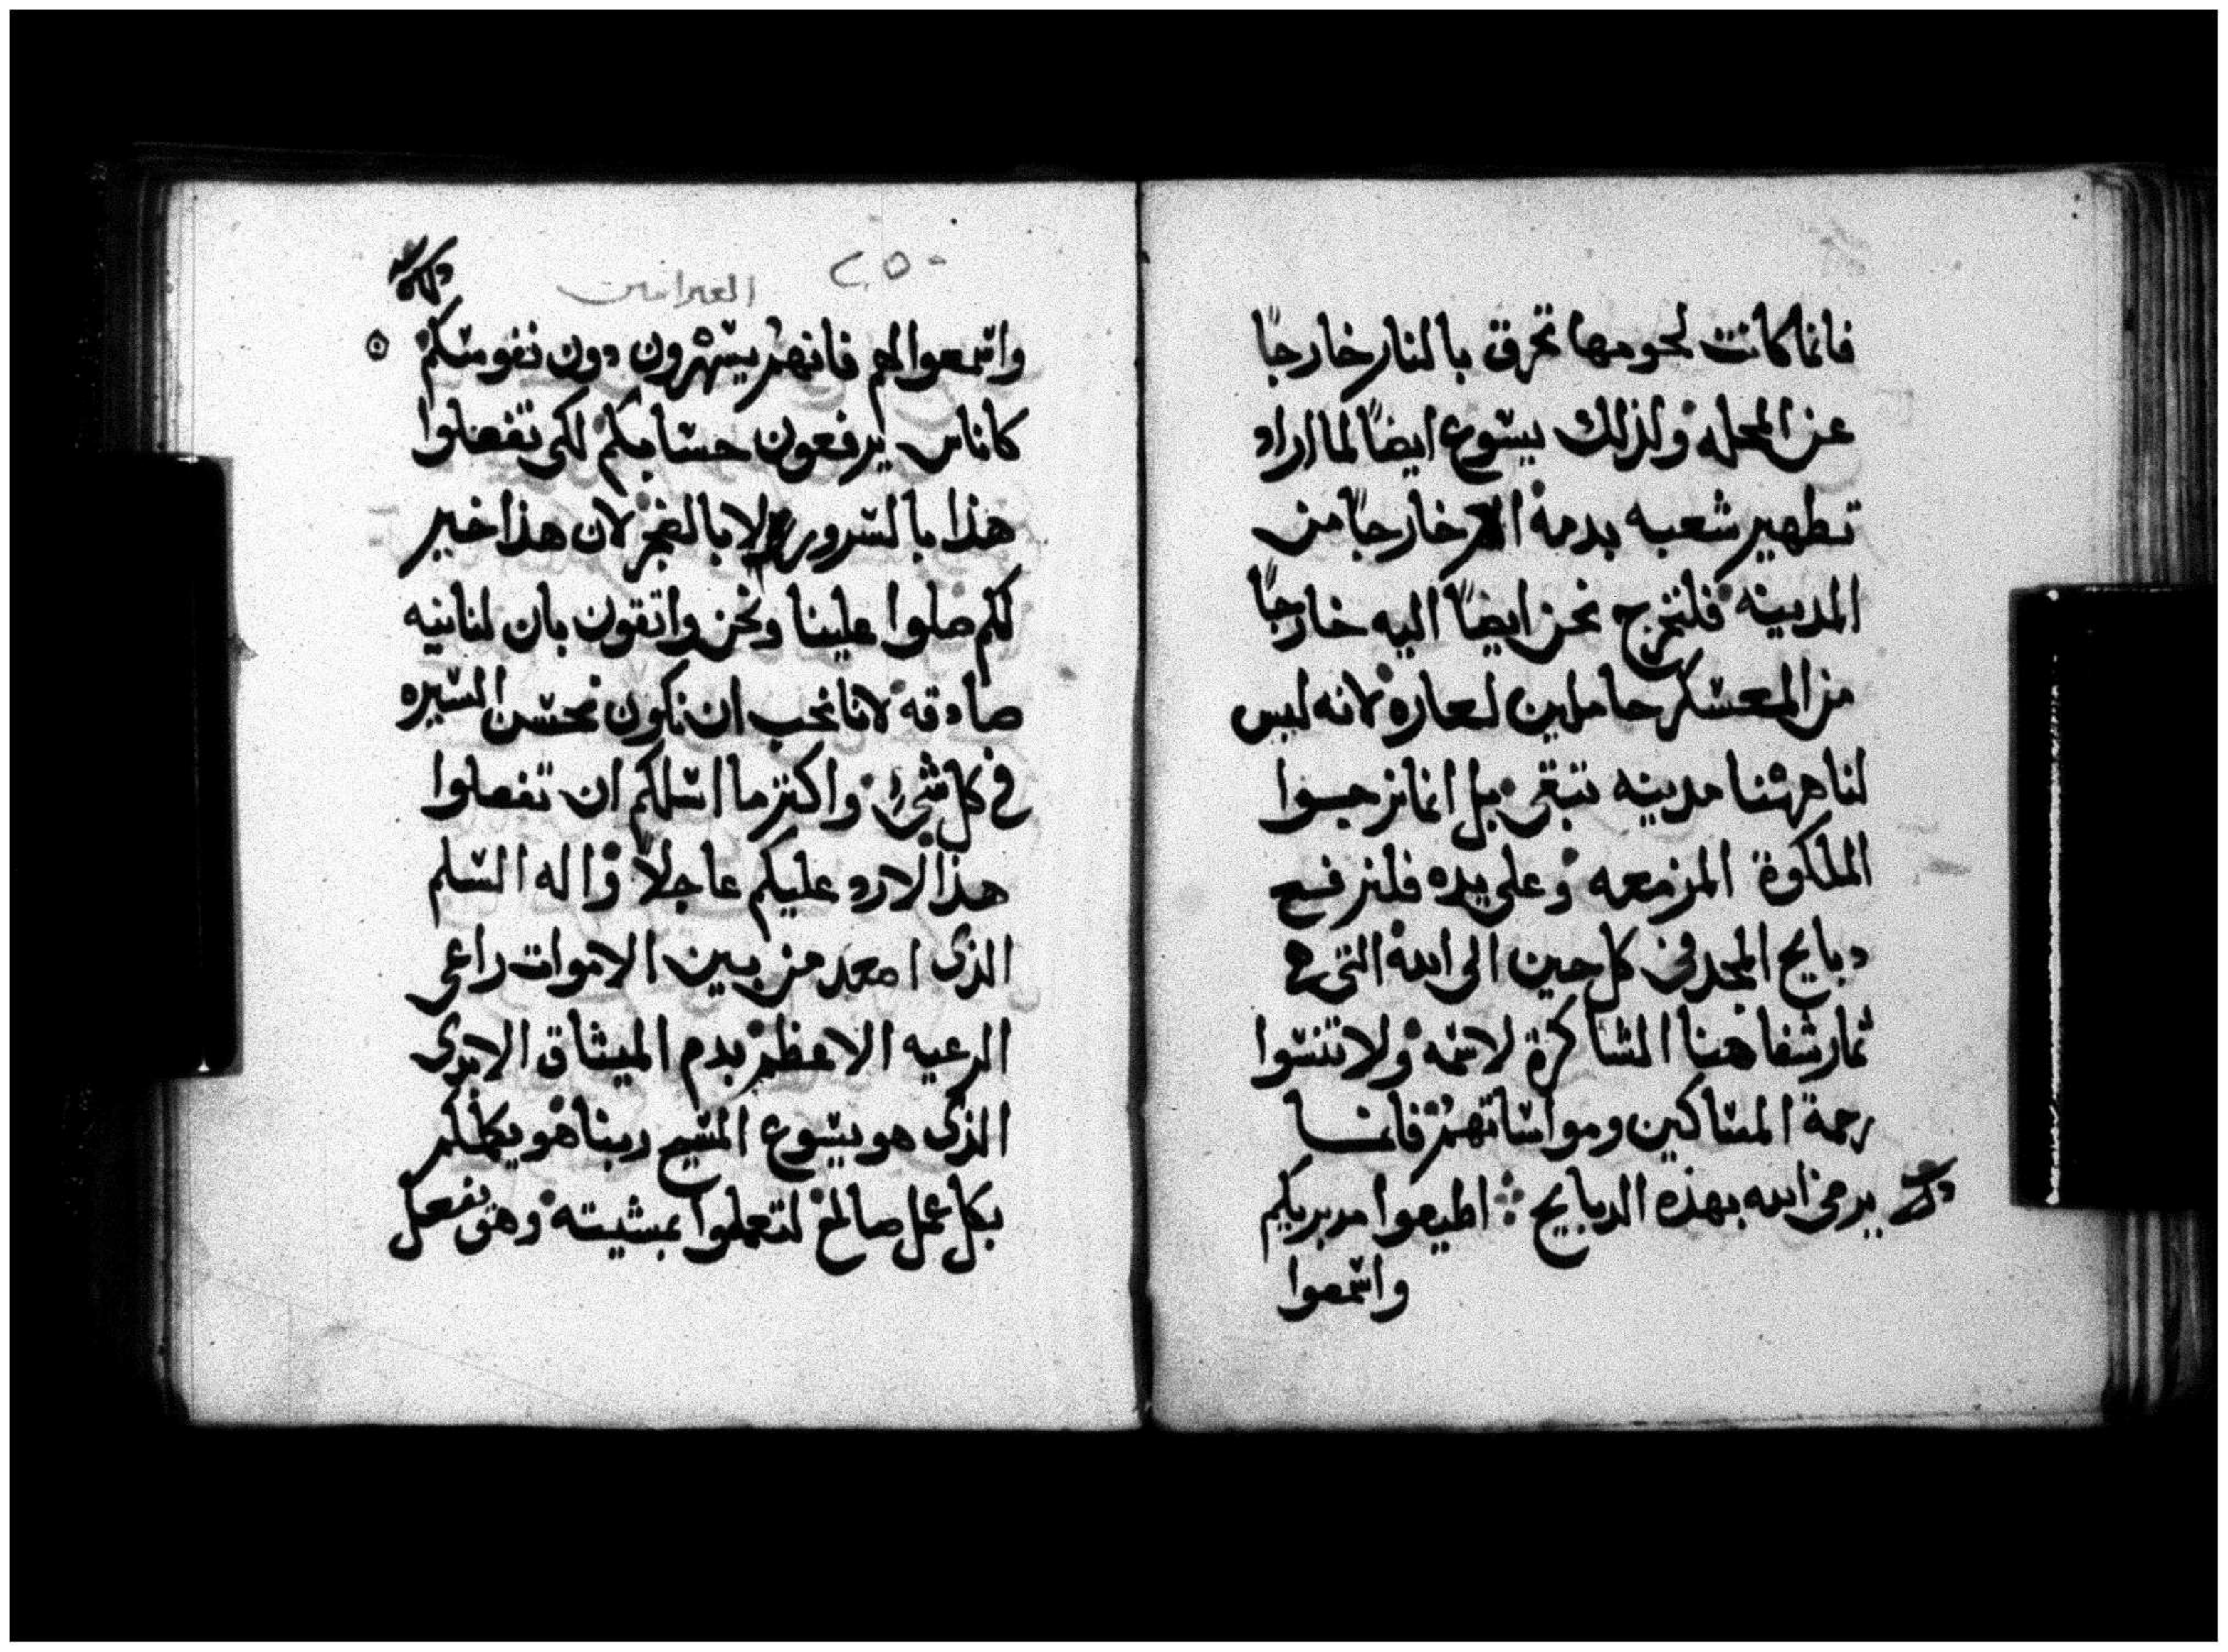 فانما كانت لحومها تحرق بالنار خارجاً
عن المحله ولذلك يسوع ايضاً لما اراد
تطهير شعبه بدمه خارجاً من
المدينه فلنخرج نحن ايضاً اليه خارجاً
من المعسكر حاملين لعاره لانه ليس
لنا ههنا مدينه تبقى بل انما نرجوا
الملكوة المزمعه وعلى يده فلنرفع
دبايح المجد في كل حين الى الله التي هي
ثمار شفاهنا الشاكرة لاسمه ولا تنسوا
رحمة المساكين ومواساتهم فانما
يرضى الله بهذه الدبايح اطيعوا مدبريكم
واسمعوا
٢٥٠
العبرانيين
واسمعوا لهم فانهم يسهرون دون نفوسكم
كاناس يرفعون حسابكم لكي تفعلوا
هذا بالسرور لا بالضجر لان هذا خير
لكم صلوا علينا ونحن واتقون بان لنا نيه
صادقه لانا نحب ان نكون نحسن السيره
في كل شيء واكتر ما اسلكم ان تفعلوا
هذا لارد عليكم عاجلاً واله السلم
الذى اصعد من بين الاموات راعي
الرعيه الاعظم بدم الميثاق الابدى
الذى هو يسوع المسيح ربنا هو يكملكم
بكل عمل صالح لتعملوا بمشيته وهو يفعل